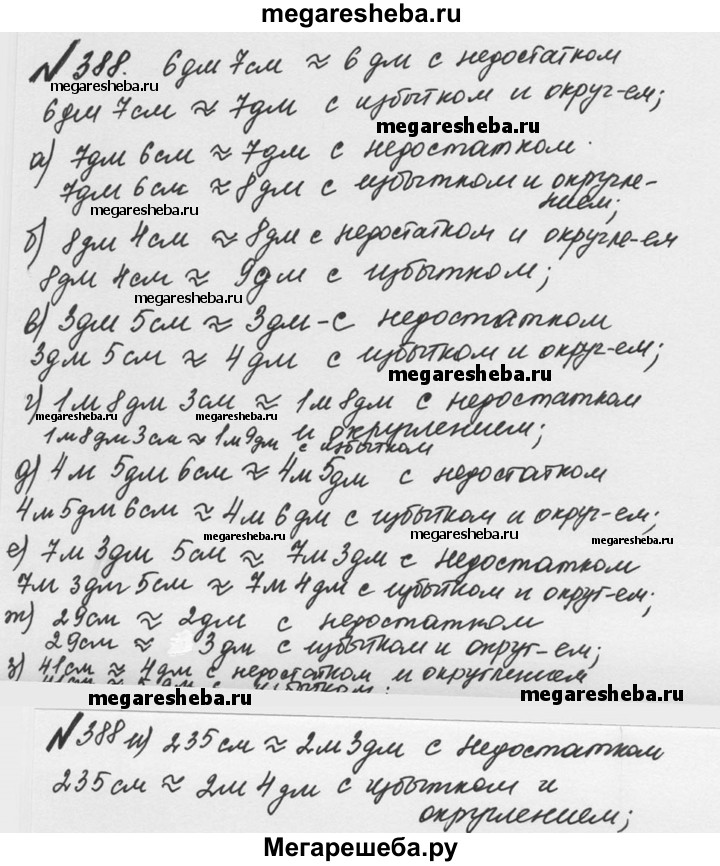 megaresheba.ru
№388. 6дм 7см ≈ 6 дм с недостатком
megaresheba.ru
6дм 7см ≈ 7дм с избытком и округ-ем;
megaresheba.ru
а) 7дм 6см ≈ 7дм с недостатком.
7дм 6см ≈ 8дм с избытком и округле-
megaresheba.ru
нием;
б) 8дм 4см ≈ 8дм с недостатком и округле-ем
8дм 4см ≈ 9дм с избытком;
megaresheba.ru
в) 3дм 5см ≈ 3дм-с недостатком
3дм 5см ≈ 4дм с избытком и округ-ем;
megaresheba.ru
г) 1м 8дм 3см ≈ 1м 8дм с недостатком
megaresheba.ru megaresheba.ru megaresheba.ru
и округлением;
1м 8дм 3см ≈ 1м 9дм с избытком
д) 4м 5дм 6см ≈ 4м 5дм с недостатком
4м 5дм 6см ≈ 4м 6дм с избытком и округ-ем;
megaresheba.ru megaresheba.ru
е) 7м 3дм 5см ≈ 7м 3дм с недостатком
7м 3дм 5см ≈ 7м 4дм с избытком и округ-ем;
ж) 29см ≈ 2дм с недостатком
29см ≈ 3дм с избытком и округ-ем;
з) 41см ≈ 4дм с недостатком и округлением
41см ≈ 5дм с избытком;
megaresheba.ru megaresheba.ru
№388 и) 235см ≈ 2м 3дм с недостатком
235см ≈ 2м 4дм с избытком и
округлением;
Мегарешеба.ру